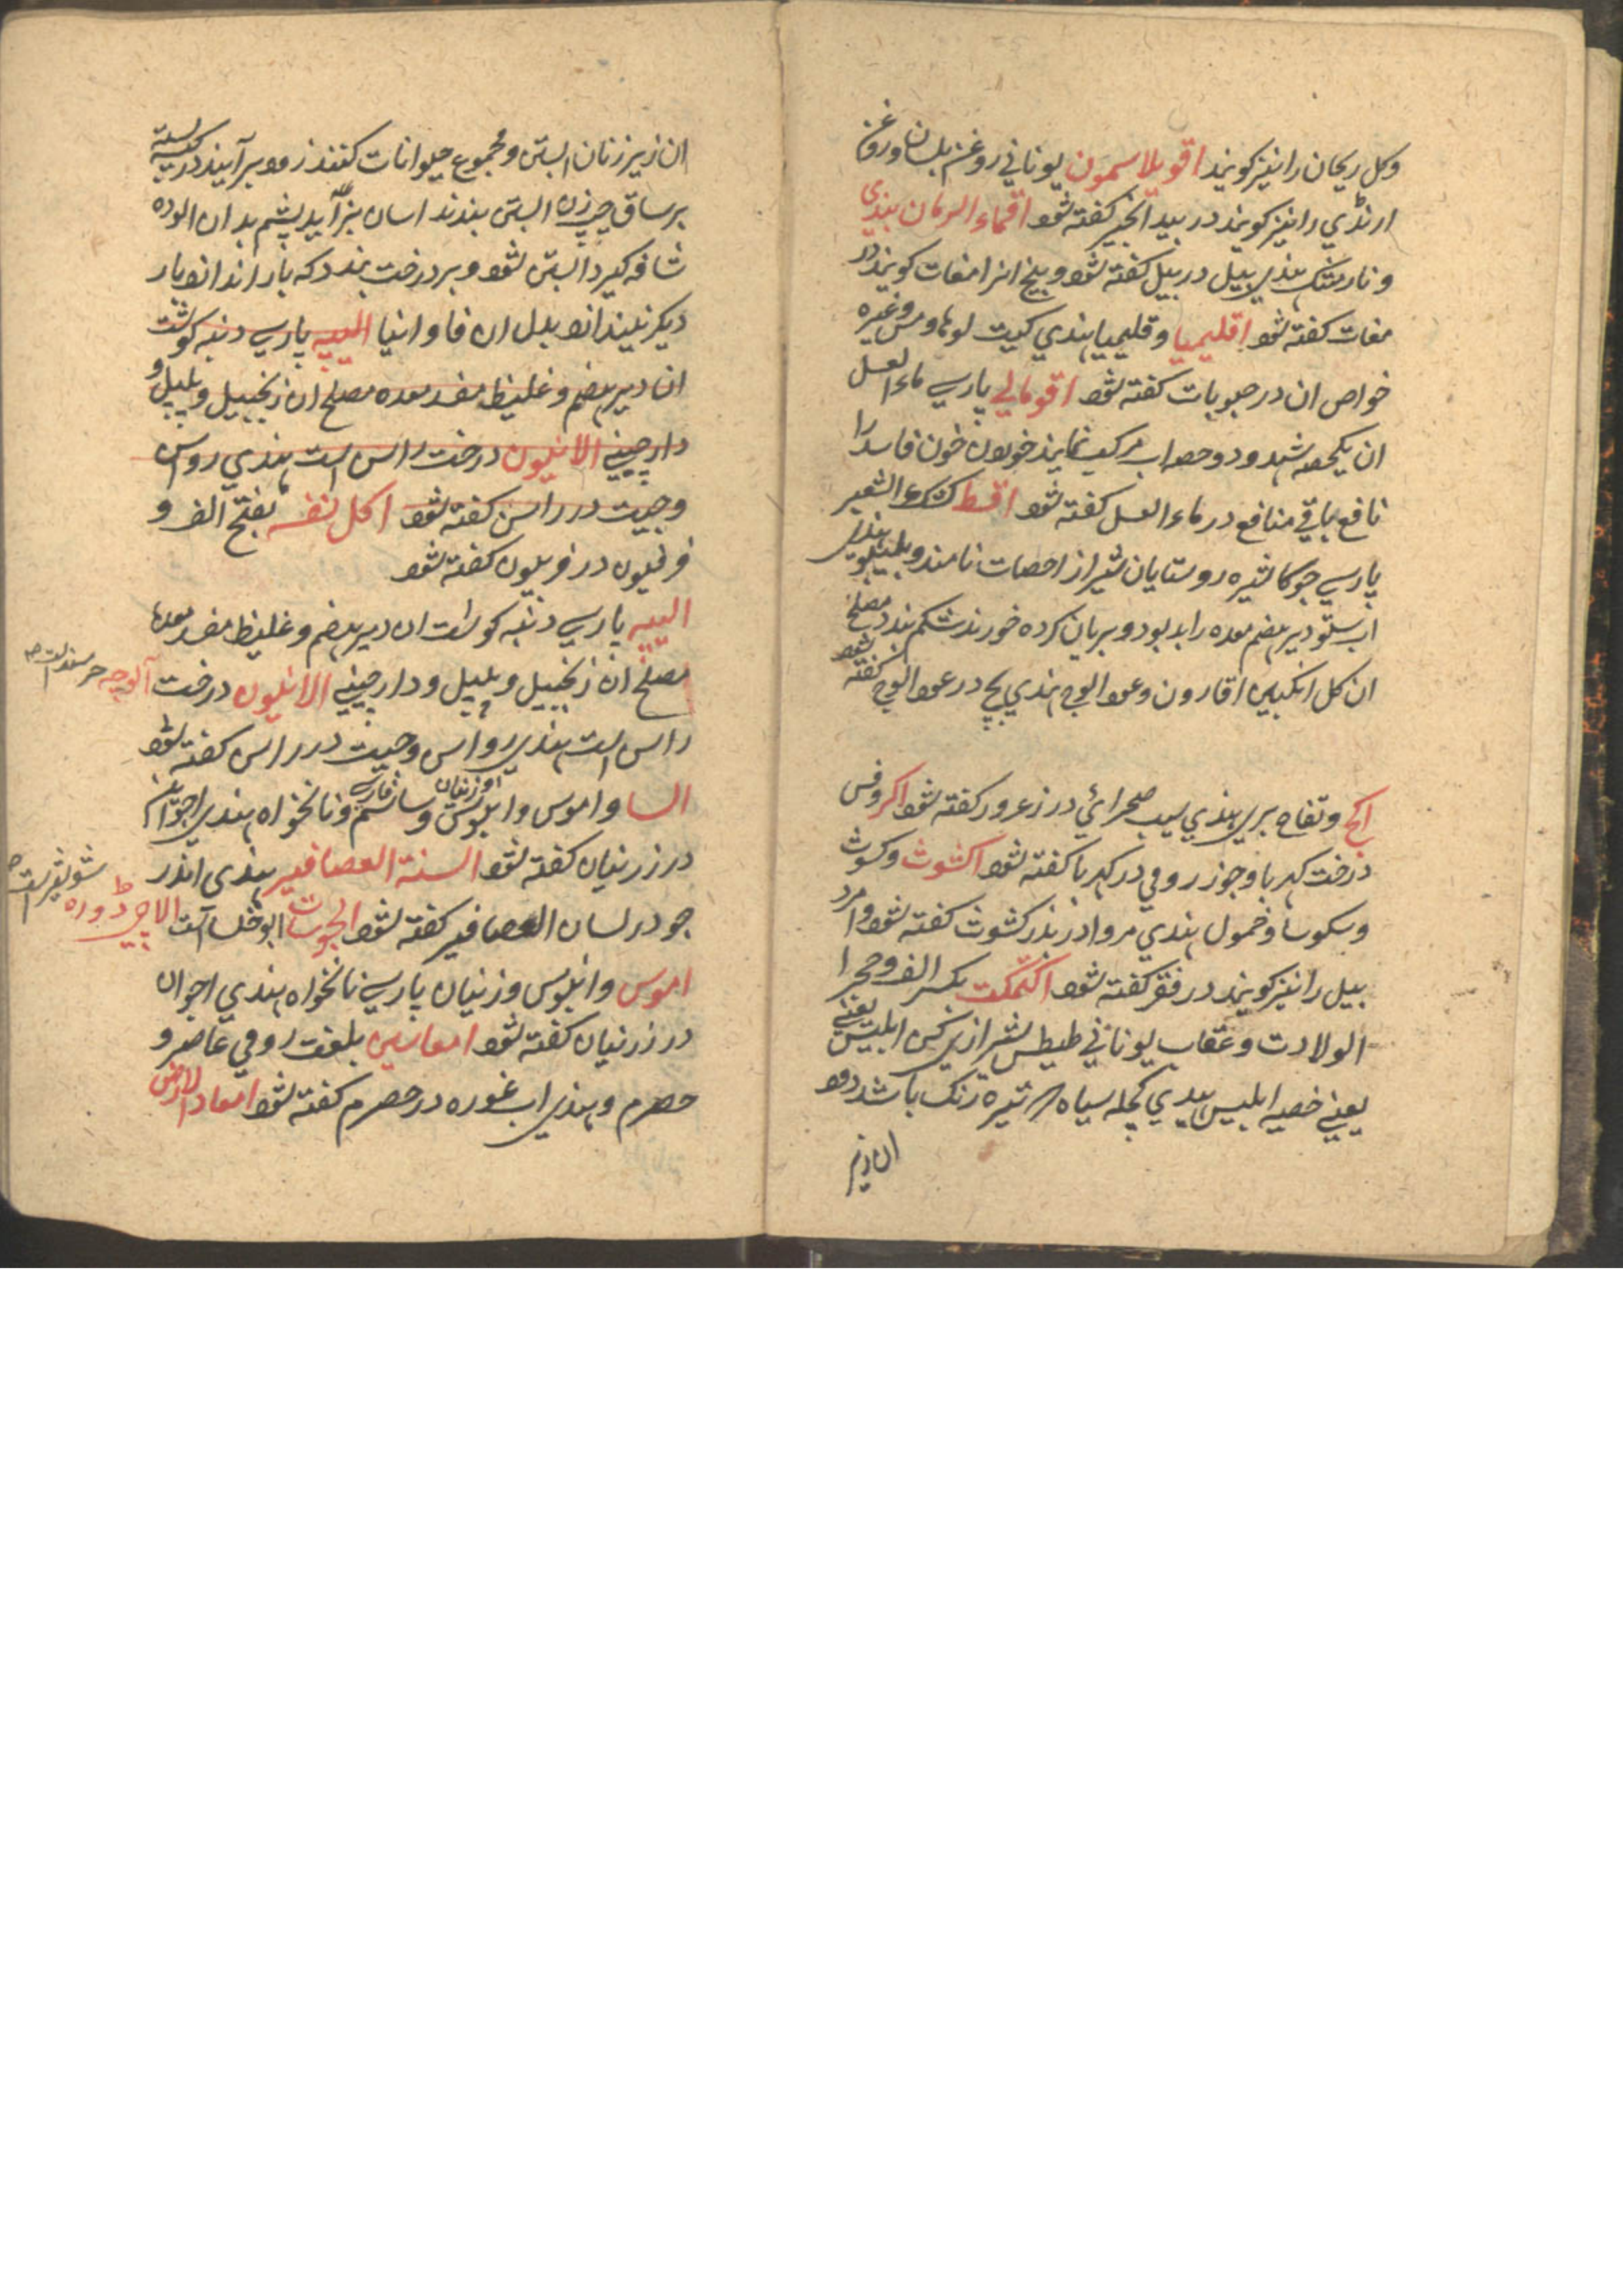 وکل ریحان را نیز کویند اقویلاسمون یونانی روغن بلسان و روغن
ارنڈی را نیز کویند در بید انجیر کفته شود اقماء الرمان بندی
و نار مشک هندی بیل در بیل کفته شود و بیخ انرا مغات کویند در
مغات کفته شود اقلیمیا و قلیمیا هندی کیت لوها و مس و غیره
خواص ان در حبوبات کفته شود اقومالی پارسی ماء العسل
ان یکحصه شهد و دو حصه اب مرکب نمایند خوردن خون فاسد را
نافع باقی منافع در ماء العسل کفته شود اقسط کشک الشعیر
پارسی جو کاشیره روستایان شیراز احصات نامند و هندی
اب ستو دیر هضم معده را بد بود و بریان کرده خورند شکم بندد مصلح
ان کل انکبین اقارون و عود الوج هندی بچ در عود الوج کفته شود
اکج و تفاح بری هندی سیب صحرائی در زعرور کفته شود اکروفس
درخت کهربا و جوز رومی در کهربا کفته شود اکشوث و کسوث
و سکوسا و خمول هندی در کشوث کفته شود
بیل را نیز کویند در فقر کفته شود اکتمکت بکسر الف و حجر ا
الولادت و عقاب یونانی طیطس شیرازی کس ابلیس یعنی
یعنی خصیه ابلیس هندی کجله سیاه تیره رنک باشد دود
ان زیر
ان زیر زنان ابستن و مجموع حیوانات کنند زود برآیند در کیسه بسته
بر ساق چپ زن ابستن بندند اسان بزاید پشم بدان الوده
شافه کیرد ابستن شود و بر درخت بندد که بار اندازد بار
دیکر نیندازد بدل ان فاوانیا الیه پارسی دنبه کوشت
ان دیر هضم و غلیظ مفسد معده مصلح ان زنجبیل و پلپل و
دارچینی الانیون درخت راس است هندی رواس
و جیت در راسن کفته شود اکل نفسه بفتح الف و
فرفیون در فربیون کفته شود
الیه پارسی دنبه کوشت ان دیر هضم و غلیظ مفسد معده
مصلح ان زنجبیل و پلپل و دارچینی الانیون درخت
آلوچه
راس است هندی رواس و جیت در راس کفته شود
السا و اموس و انیوس و زنیان و ساسم فارسی و نانخواه هندی اجوائن
در زنیان کفته شود السنة العصافیر هندی اندر
جو در لسان العصافیر کفته شود الجوسات ابوخلسا است
الاچی دوره
اموس و انیوس و زنیان پارسی نانخواه هندی اجوان
در زنیان کفته شود امعاسین بلغت رومی عاصر و
حصرم و هندی اب غوره در حصرم کفته شود امعاد الارض